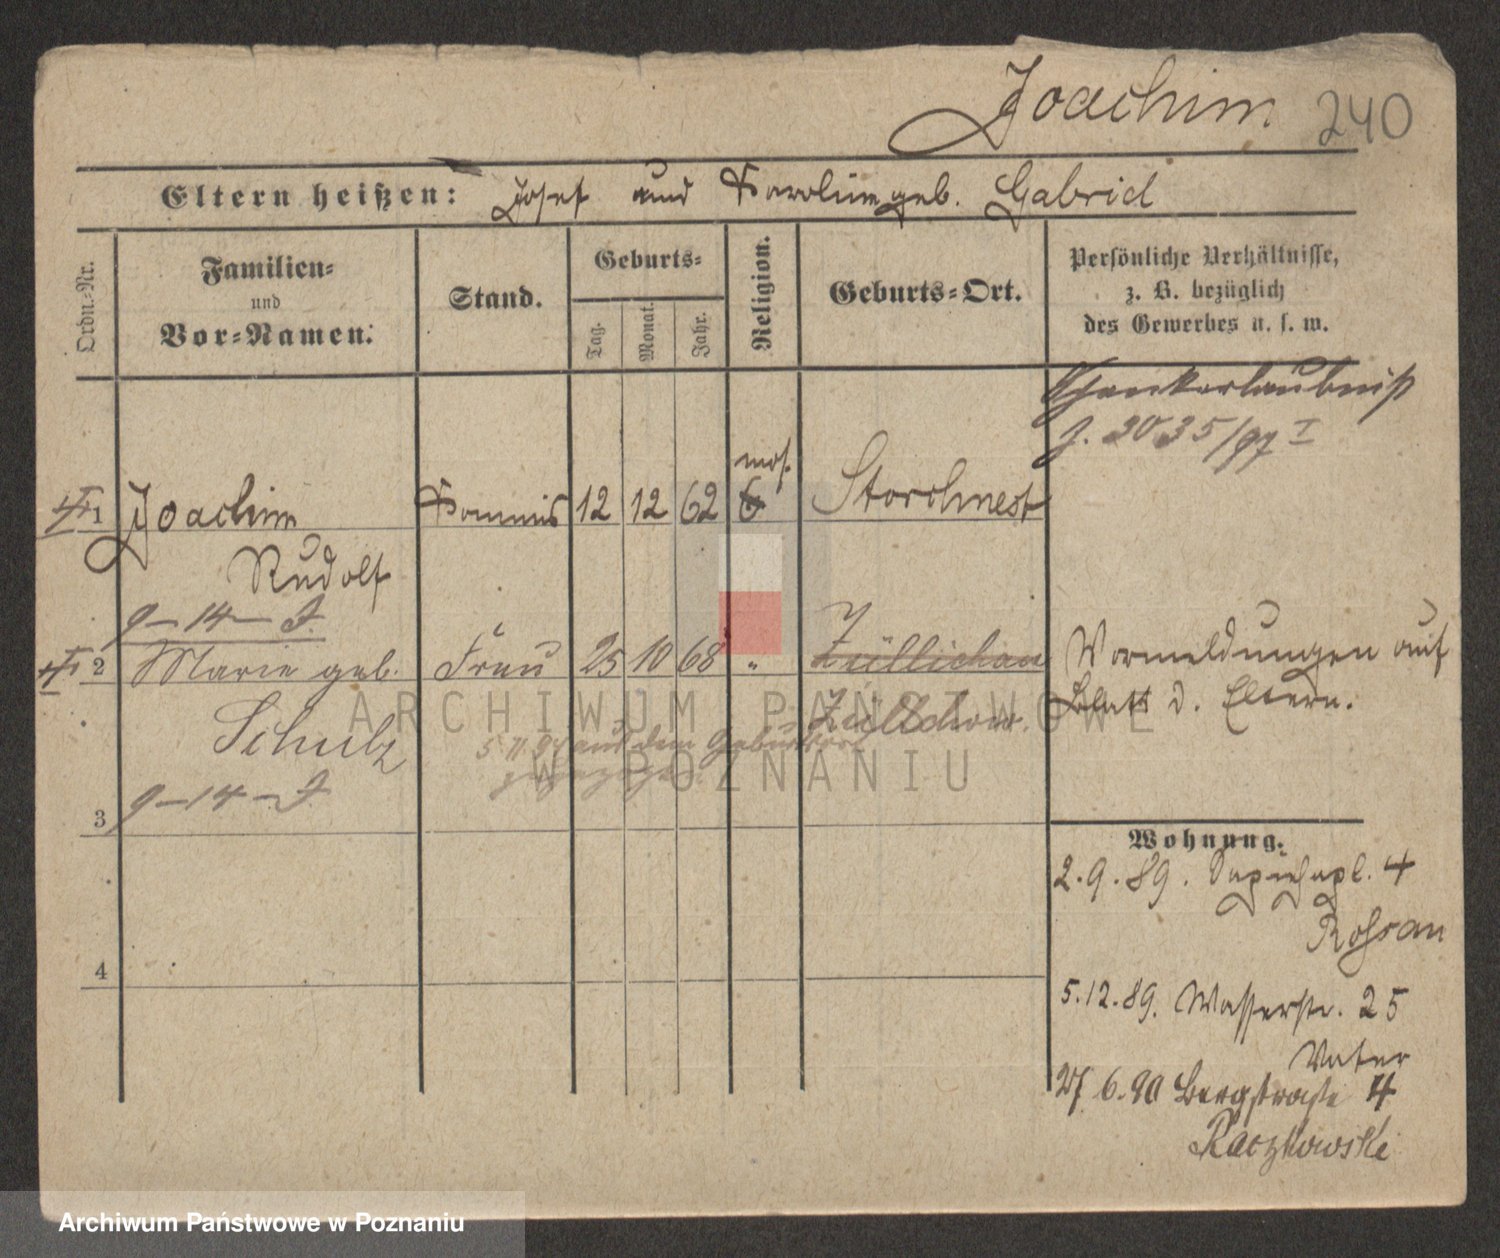 Joachim 240
Eltern heißen: Josef und Karoline geb. Gabriel
Ordn.-Nr.
Familien-
und
Vor-Namen.
Stand.
Geburts-
Tag.
Monat.
Jahr.
Religion.
Geburts-Ort.
Persönliche Verhältnisse,
z. B. bezüglich
des Gewerbes u. s. w.
Schankerlaubniß
J. 2035/97 I
1 Joachim Kommis 12 12 62 mos. Storchnest
Rudolf
9-14-J.
2 Marie geb. Frau 25 10 68 " Züllichau
Schulz
Züllchow.
5.11.94 aus dem Geburtsort
zugezogen.
9-14-J
Vormeldungen auf
Blatt d. Eltern.
3
4
Wohnung.
2.9.89. Sapiehapl. 4
5.12.89. Wasserstr. 25
Vater
27 6.90 Bergstraße 4
Raczkowski
ARCHIWUM PAŃSTWOWE
W POZNANIU
Archiwum Państwowe w Poznaniu